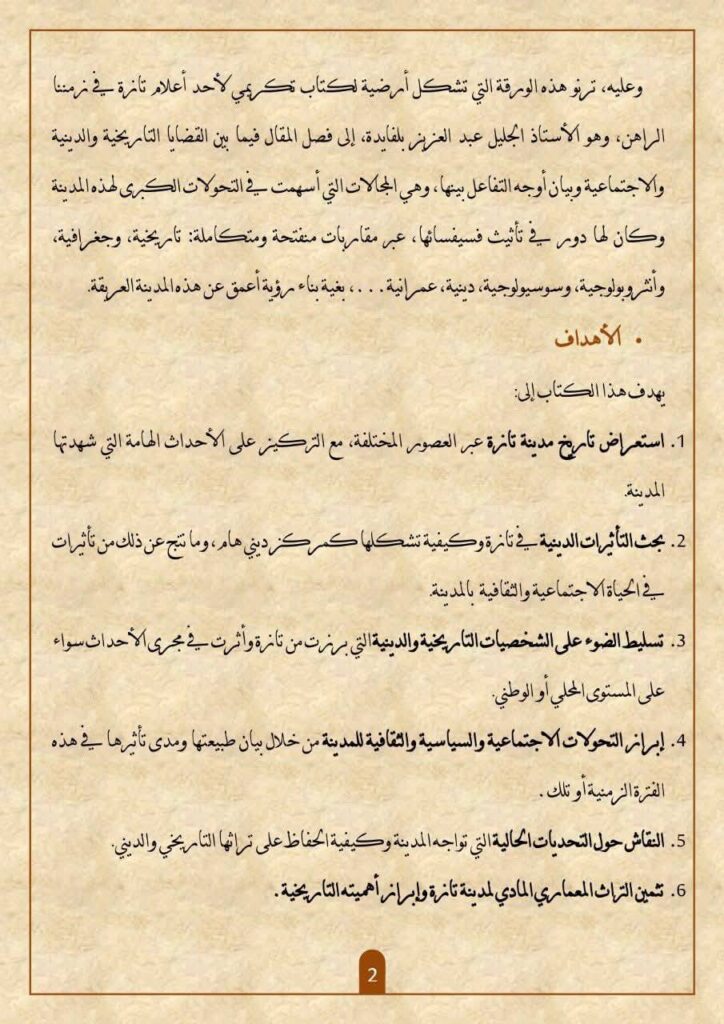 وعليه، ترنو هذه الورقة التي تشكل أرضية لكتاب تكريمي لأحد أعلام تازة في زمننا
الراهن، وهو الأستاذ الجليل عبد العزيز بلفايدة، إلى فصل المقال فيما بين القضايا التاريخية والدينية
والاجتماعية وبيان أوجه التفاعل بينها، وهي المجالات التي أسهمت في التحولات الكبرى لهذه المدينة
وكان لها دور في تأثيث فسيفسائها، عبر مقاربات منفتحة ومتكاملة: تاريخية، وجغرافية،
وأنثروبولوجية، وسوسيولوجية، دينية، عمرانية ...، بغية بناء رؤية أعمق عن هذه المدينة العريقة.
• الأهداف
يهدف هذا الكتاب إلى:
1. استعراض تاريخ مدينة تازة عبر العصور المختلفة، مع التركيز على الأحداث الهامة التي شهدتها
المدينة.
2. بحث التأثيرات الدينية في تازة وكيفية تشكلها كمركز ديني هام، وما نتج عن ذلك من تأثيرات
في الحياة الاجتماعية والثقافية بالمدينة.
3. تسليط الضوء على الشخصيات التاريخية والدينية التي برزت من تازة وأثرت في مجرى الأحداث سواء
على المستوى المحلي أو الوطني.
4. إبراز التحولات الاجتماعية والسياسية والثقافية للمدينة من خلال بيان طبيعتها ومدى تأثيرها في هذه
الفترة الزمنية أو تلك .
5. النقاش حول التحديات الحالية التي تواجه المدينة وكيفية الحفاظ على تراثها التاريخي والديني.
6. تثمين التراث المعماري المادي لمدينة تازة وإبراز أهميته التاريخية .
2